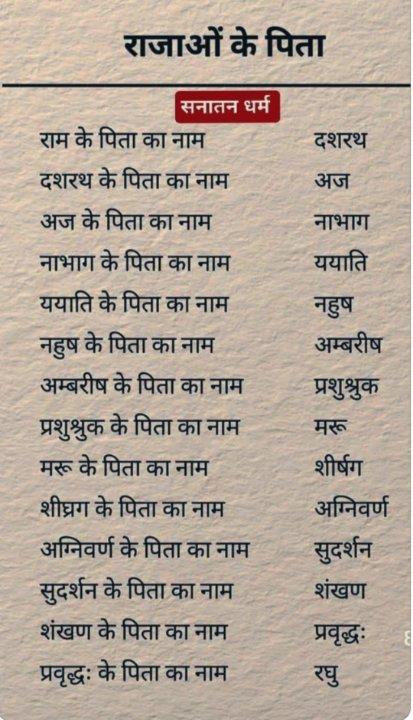 राजाओं के पिता
सनातन धर्म
राम के पिता का नाम दशरथ
दशरथ के पिता का नाम अज
अज के पिता का नाम नाभाग
नाभाग के पिता का नाम ययाति
ययाति के पिता का नाम नहुष
नहुष के पिता का नाम अम्बरीष
अम्बरीष के पिता का नाम प्रशुश्रुक
प्रशुश्रुक के पिता का नाम मरू
मरू के पिता का नाम शीर्षग
शीघ्रग के पिता का नाम अग्निवर्ण
अग्निवर्ण के पिता का नाम सुदर्शन
सुदर्शन के पिता का नाम शंखण
शंखण के पिता का नाम प्रवृद्धः
प्रवृद्धः के पिता का नाम रघु